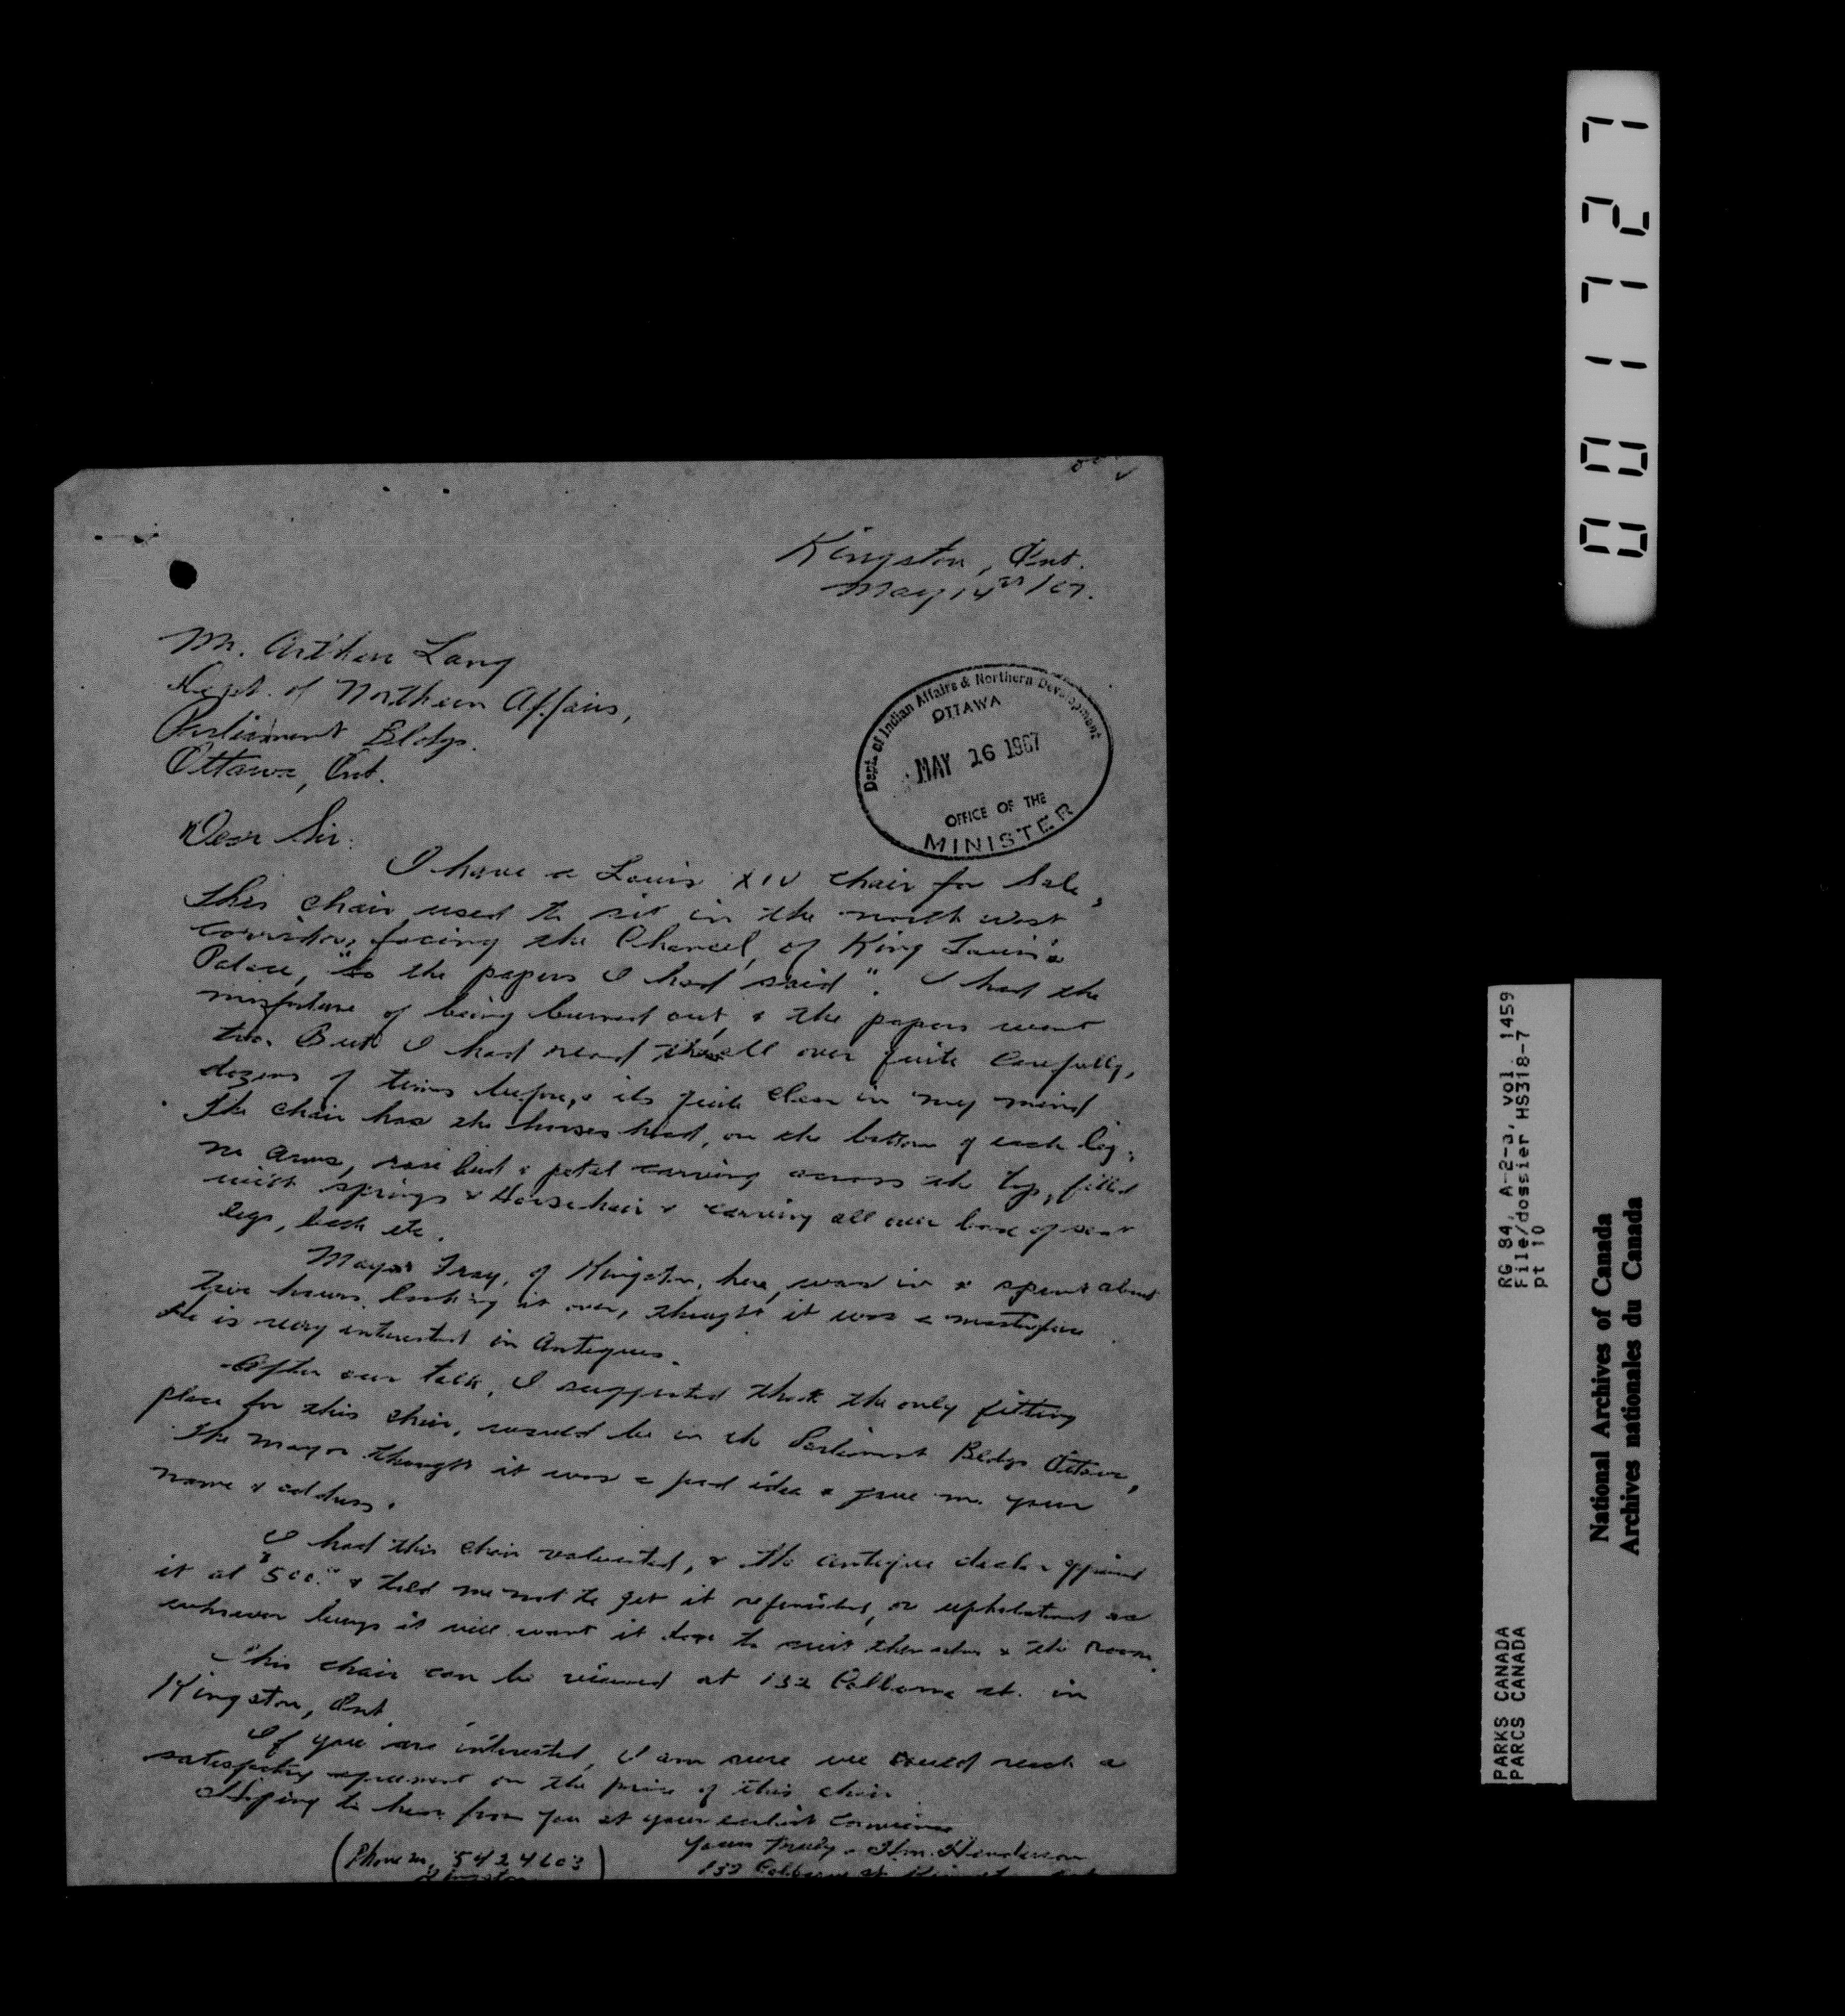 Kingston, Ont.
May 14th/67.
Mr. Arthur Lang
Dept. of Northern Affairs,
Parliament Bldgs.
Ottawa, Ont.
Dept. of Indian Affairs & Northern Development
OTTAWA
MAY 16 1967
OFFICE OF THE
MINISTER
Dear Sir:
I have a Louis XIV chair for sale,
this chair used to sit in the north west
corridor, facing the Chancel, of King Louis's
Palace, "so the papers I had said". I had the
misfortune of being burned out, & the papers went
too. But I had read them all over quite carefully,
dozens of times before, & its quite clear in my mind
The chair has the horses head, on the bottom of each leg,
no arms, rose bud & petal carving across the top, filled
with springs & Horsehair & carving all over base of seat
legs, back etc.
Mayor Fray, of Kingston, here, was in & spent about
two hours looking it over, thought it was a masterpiece.
He is very interested in Antiques.
After our talk, I suggested that the only fitting
place for this chair, would be in the Parliament Bldgs Ottawa,
The mayor thought it was a good idea & gave me your
name & address.
I had this chair valuated, & the antique dealer appraised
it at $500.00 & told me not to get it refinished, or upholstered as
whoever buys it will want it done to suit themselves & the room.
This chair can be viewed at 132 Colborne st. in
Kingston, Ont
If you are interested, I am sure we could reach a
satisfactory agreement on the price of this chair
Hoping to hear from you at your earliest convenience
Yours truly - Wm. Henderson
(Phone no. 5424603)
Kingston
132 Colborne st. Kingston Ont
001727
RG 84, A-2-a, vol. 1459
File/dossier HS318-7
pt 10
PARKS CANADA
PARCS CANADA
National Archives of Canada
Archives nationales du Canada